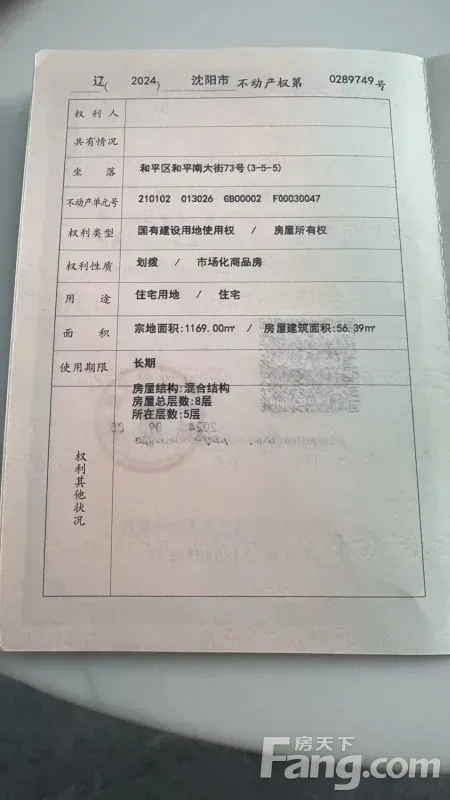 辽( 2024) 沈阳市 不动产权第 0289749 号
权利人
共有情况
坐落 和平区和平南大街73号(3-5-5)
不动产单元号 210102 013026 GB00002 F00030047
权利类型 国有建设用地使用权 / 房屋所有权
权利性质 划拨 / 市场化商品房
用途 住宅用地 / 住宅
面积 宗地面积:1169.00㎡ / 房屋建筑面积:56.39㎡
使用期限 长期
权利其他状况
房屋结构:混合结构
房屋总层数:8层
所在层数:5层
房天下
Fang.com